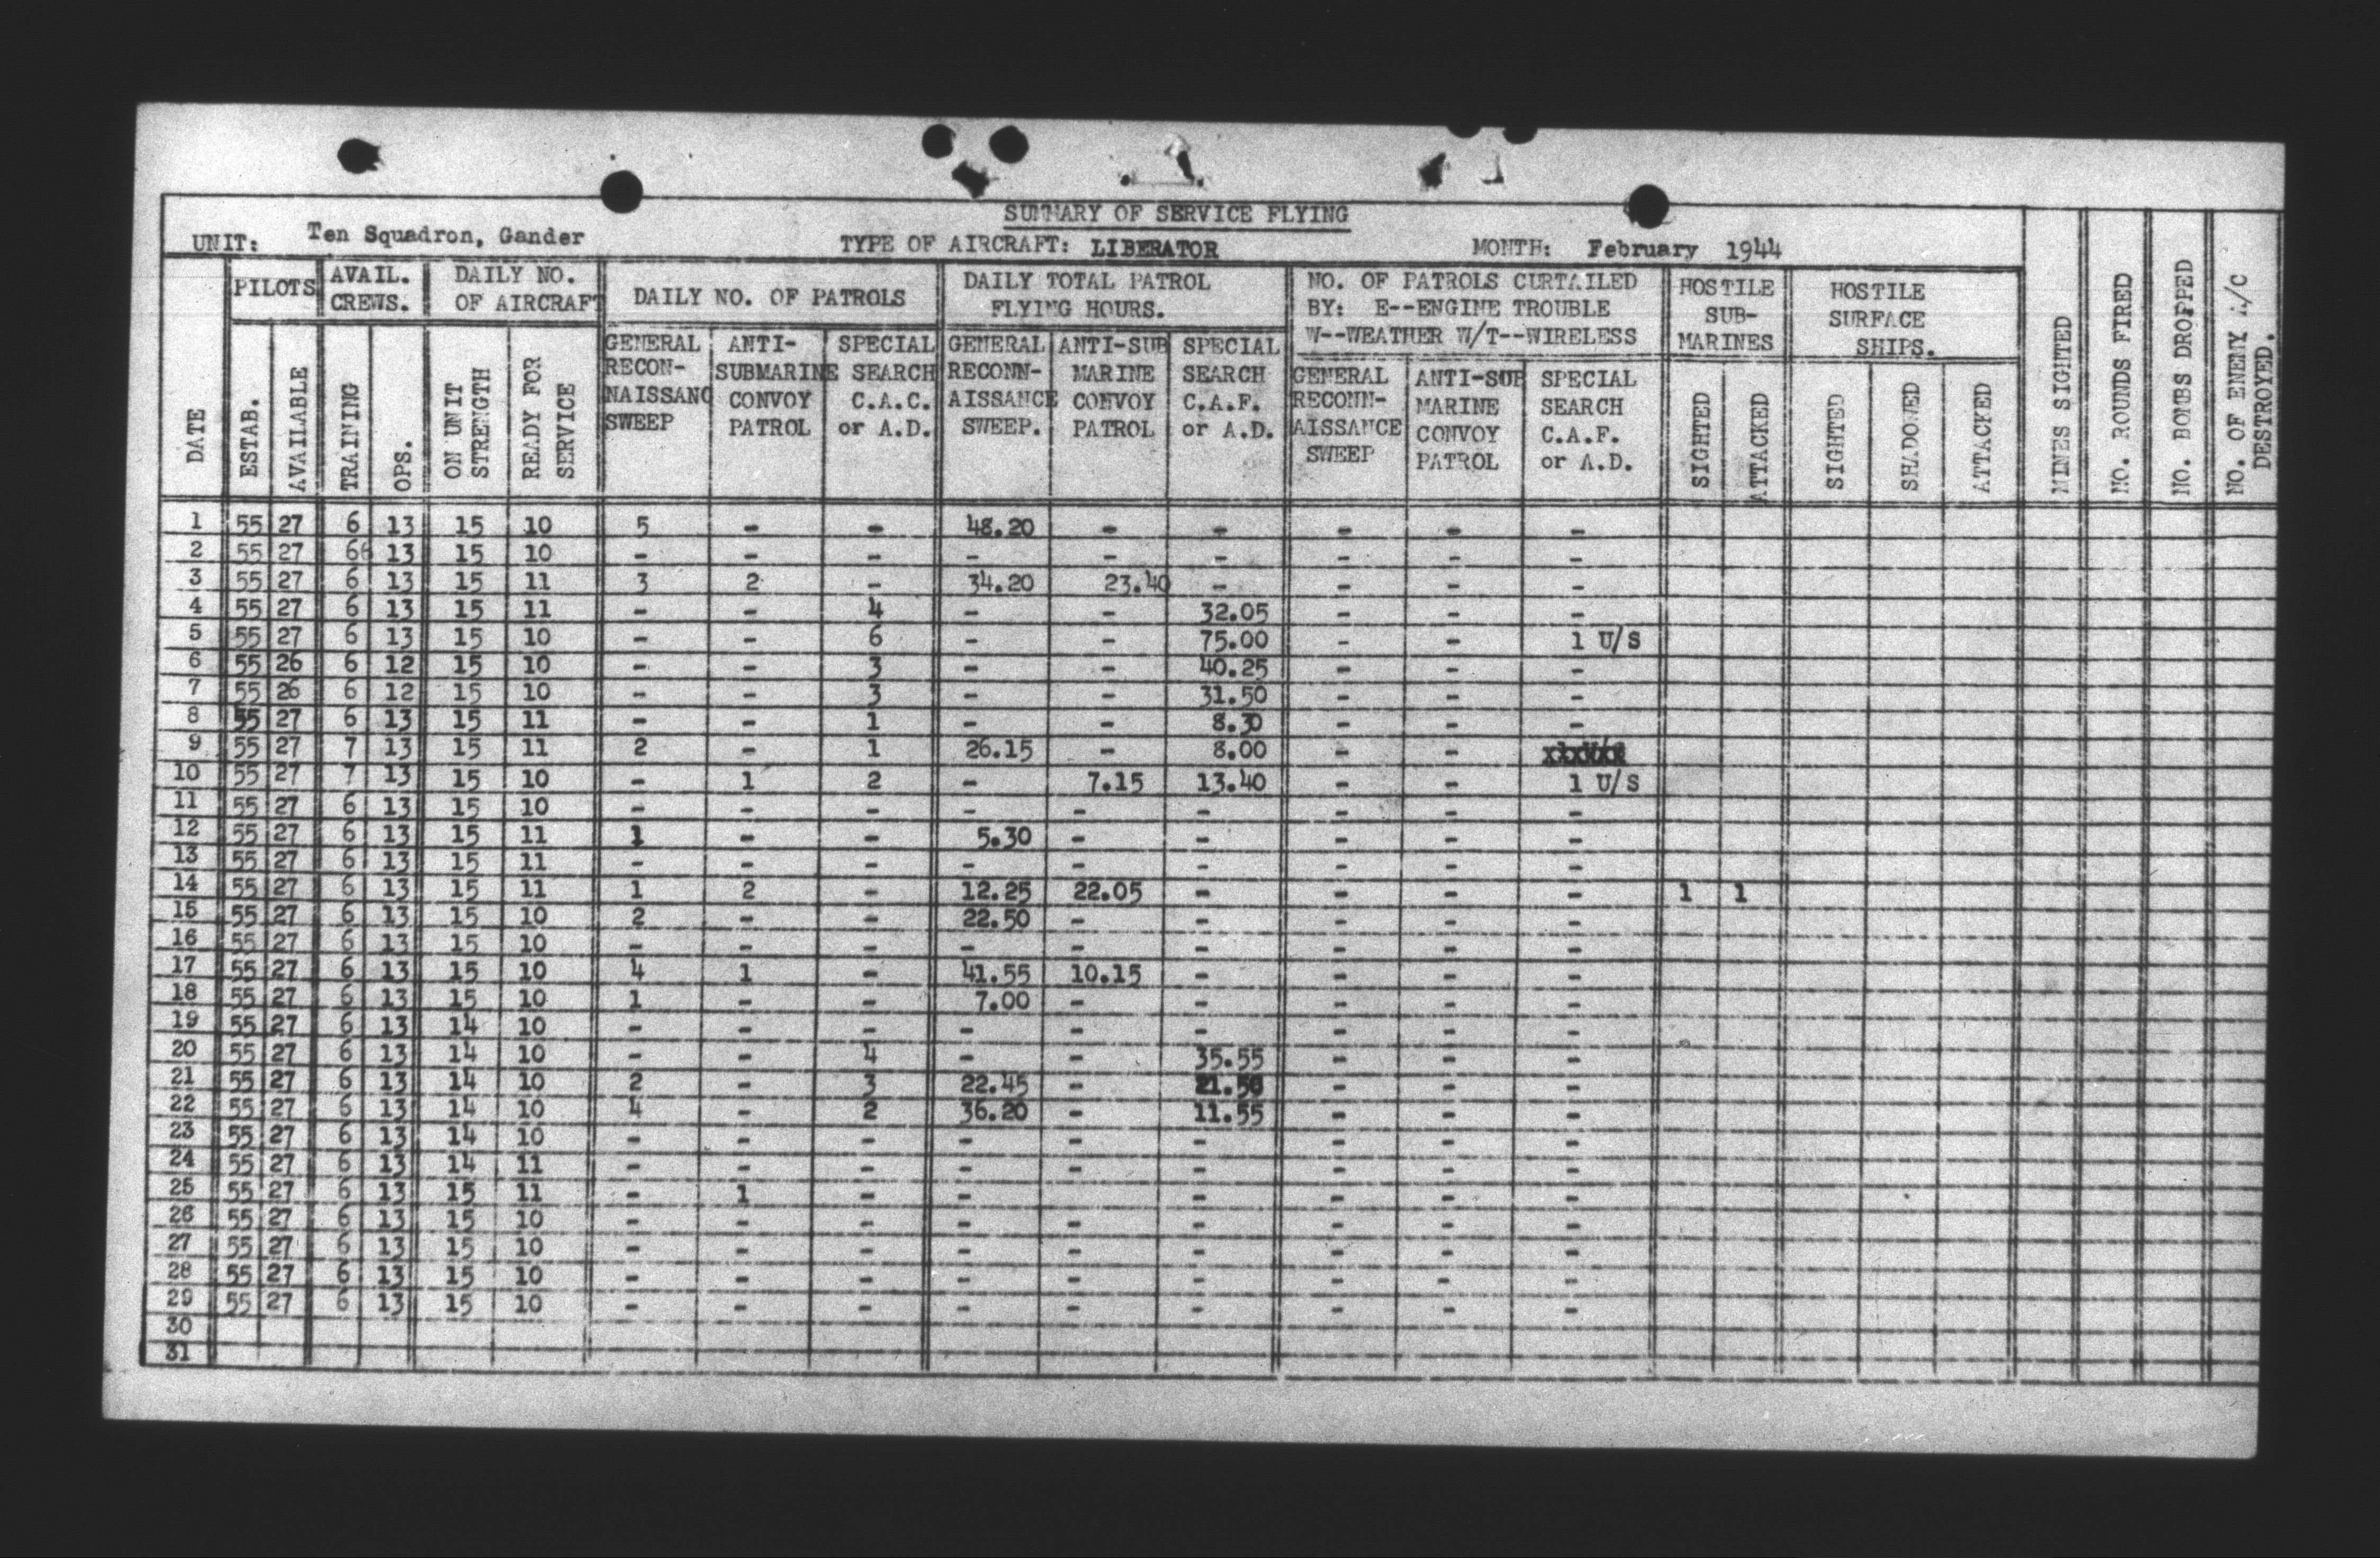 SUMMARY OF SERVICE FLYING
UNIT: Ten Squadron, Gander TYPE OF AIRCRAFT: LIBERATOR MONTH: February 1944
DATE
PILOTS
ESTAB.
AVAILABLE
AVAIL. CREWS.
TRAINING
OPS.
DAILY NO. OF AIRCRAFT
ON UNIT STRENGTH
READY FOR SERVICE
DAILY NO. OF PATROLS
GENERAL RECON-NAISSANC SWEEP
ANTI-SUBMARINE CONVOY PATROL
SPECIAL SEARCH C.A.C. or A.D.
DAILY TOTAL PATROL FLYING HOURS.
GENERAL RECONN-AISSANCE SWEEP.
ANTI-SUB MARINE CONVOY PATROL
SPECIAL SEARCH C.A.F. or A.D.
NO. OF PATROLS CURTAILED
BY: E--ENGINE TROUBLE
W--WEATHER W/T--WIRELESS
GENERAL RECONN-AISSANCE SWEEP
ANTI-SUB MARINE CONVOY PATROL
SPECIAL SEARCH C.A.F. or A.D.
HOSTILE SUB-MARINES
SIGHTED
ATTACKED
HOSTILE SURFACE SHIPS.
SIGHTED
SHADOWED
ATTACKED
MINES SIGHTED
NO. ROUNDS FIRED
NO. BOMBS DROPPED
NO. OF ENEMY A/C DESTROYED.
1 55 27 6 13 15 10 5 - - 48.20 - - - - -
2 55 27 66 13 15 10 - - - - - - - - -
3 55 27 6 13 15 11 3 2 - 34.20 23.40 - - - -
4 55 27 6 13 15 11 - - 4 - - 32.05 - - -
5 55 27 6 13 15 10 - - 6 - - 75.00 - - 1 U/S
6 55 26 6 12 15 10 - - 3 - - 40.25 - - -
7 55 26 6 12 15 10 - - 3 - - 31.50 - - -
8 55 27 6 13 15 11 - - 1 - - 8.30 - - -
9 55 27 7 13 15 11 2 - 1 26.15 - 8.00 - -
10 55 27 7 13 15 10 - 1 2 - 7.15 13.40 - - 1 U/S
11 55 27 6 13 15 10 - - - - - - - - -
12 55 27 6 13 15 11 1 - - 5.30 - - - - -
13 55 27 6 13 15 11 - - - - - - - - -
14 55 27 6 13 15 11 1 2 - 12.25 22.05 - - - - 1 1
15 55 27 6 13 15 10 2 - - 22.50 - - - - -
16 55 27 6 13 15 10 - - - - - - - - -
17 55 27 6 13 15 10 4 1 - 41.55 10.15 - - - -
18 55 27 6 13 15 10 1 - - 7.00 - - - - -
19 55 27 6 13 14 10 - - - - - - - - -
20 55 27 6 13 14 10 - - 4 - - 35.55 - - -
21 55 27 6 13 14 10 2 - 3 22.45 - 21.50 - - -
22 55 27 6 13 14 10 4 - 2 36.20 - 11.55 - - -
23 55 27 6 13 14 10 - - - - - - - - -
24 55 27 6 13 14 11 - - - - - - - - -
25 55 27 6 13 15 11 - 1 - - - - - -
26 55 27 6 13 15 10 - - - - - - - - -
27 55 27 6 13 15 10 - - - - - - - - -
28 55 27 6 13 15 10 - - - - - - - - -
29 55 27 6 13 15 10 - - - - - - - - -
30
31